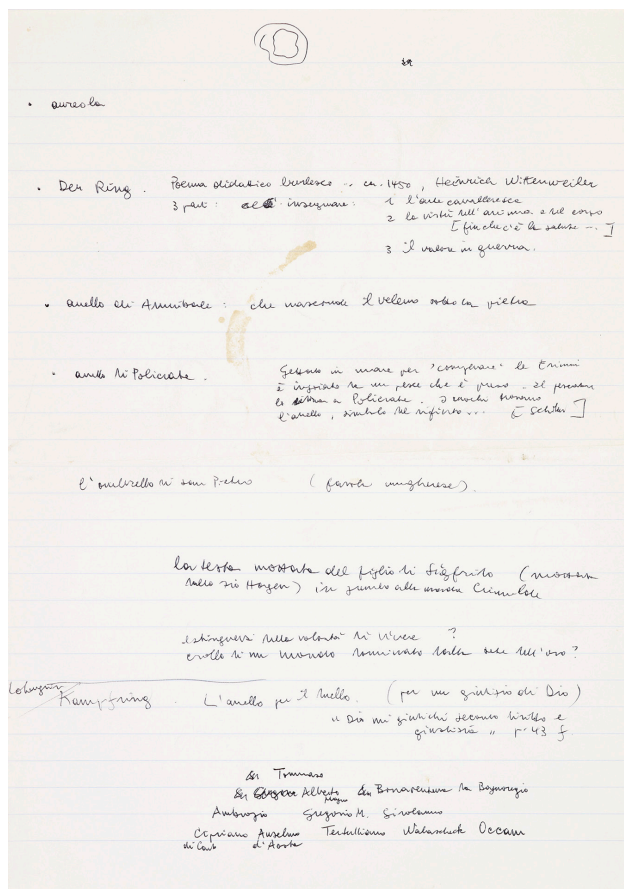 • aureola
• Der Ring. Poema didattico burlesco .. ca. 1450, Heinrich Wittenweiler
3 parti: insegnare: 1 l'arte cavalleresca
2 le virtù dell'anima e del corpo
[finche c'è la salute ... ]
3 il valore in guerra.
• anello di Annibale: che nasconde il veleno sotto la pietra
• anello di Policrate. Gettato in mare per "comperare" le Erinni
è ingoiato da un pesce che è preso. Il pescatore
lo a Policrate. I cuochi trovano
l'anello, simbolo del rifiuto ... [Schiller]
l'ombrello di san Pietro (favola ungherese).
la testa mozzata del figlio di Sigfrido (mozzata
dallo zio Hagen) in grembo alla Crimilde
estinguersi della volontà di vivere ?
crollo di un mondo dominato dalla sete dell'oro?
Lohengrin
Kampfring. L'anello per il duello. (per un giudizio di Dio)
"Dio mi giudichi secondo diritto e
giustizia" p. 43 f
Tommaso
Alberto Magno Bonaventura da Bagnoregio
Ambrogio Gregorio M. Girolamo
Cipriano Anselmo Tertulliano Occam
di Cart d'Aosta